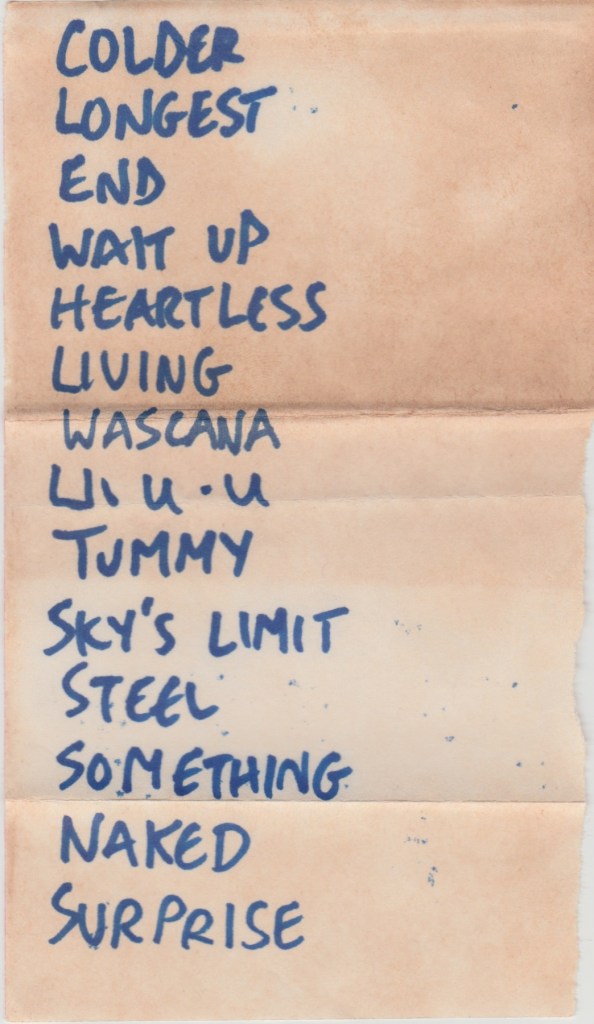 COLDER
LONGEST
END
WAIT UP
HEARTLESS
LIVING
WASCANA
TUMMY
SKY'S LIMIT
STEEL
SOMETHING
NAKED
SURPRISE